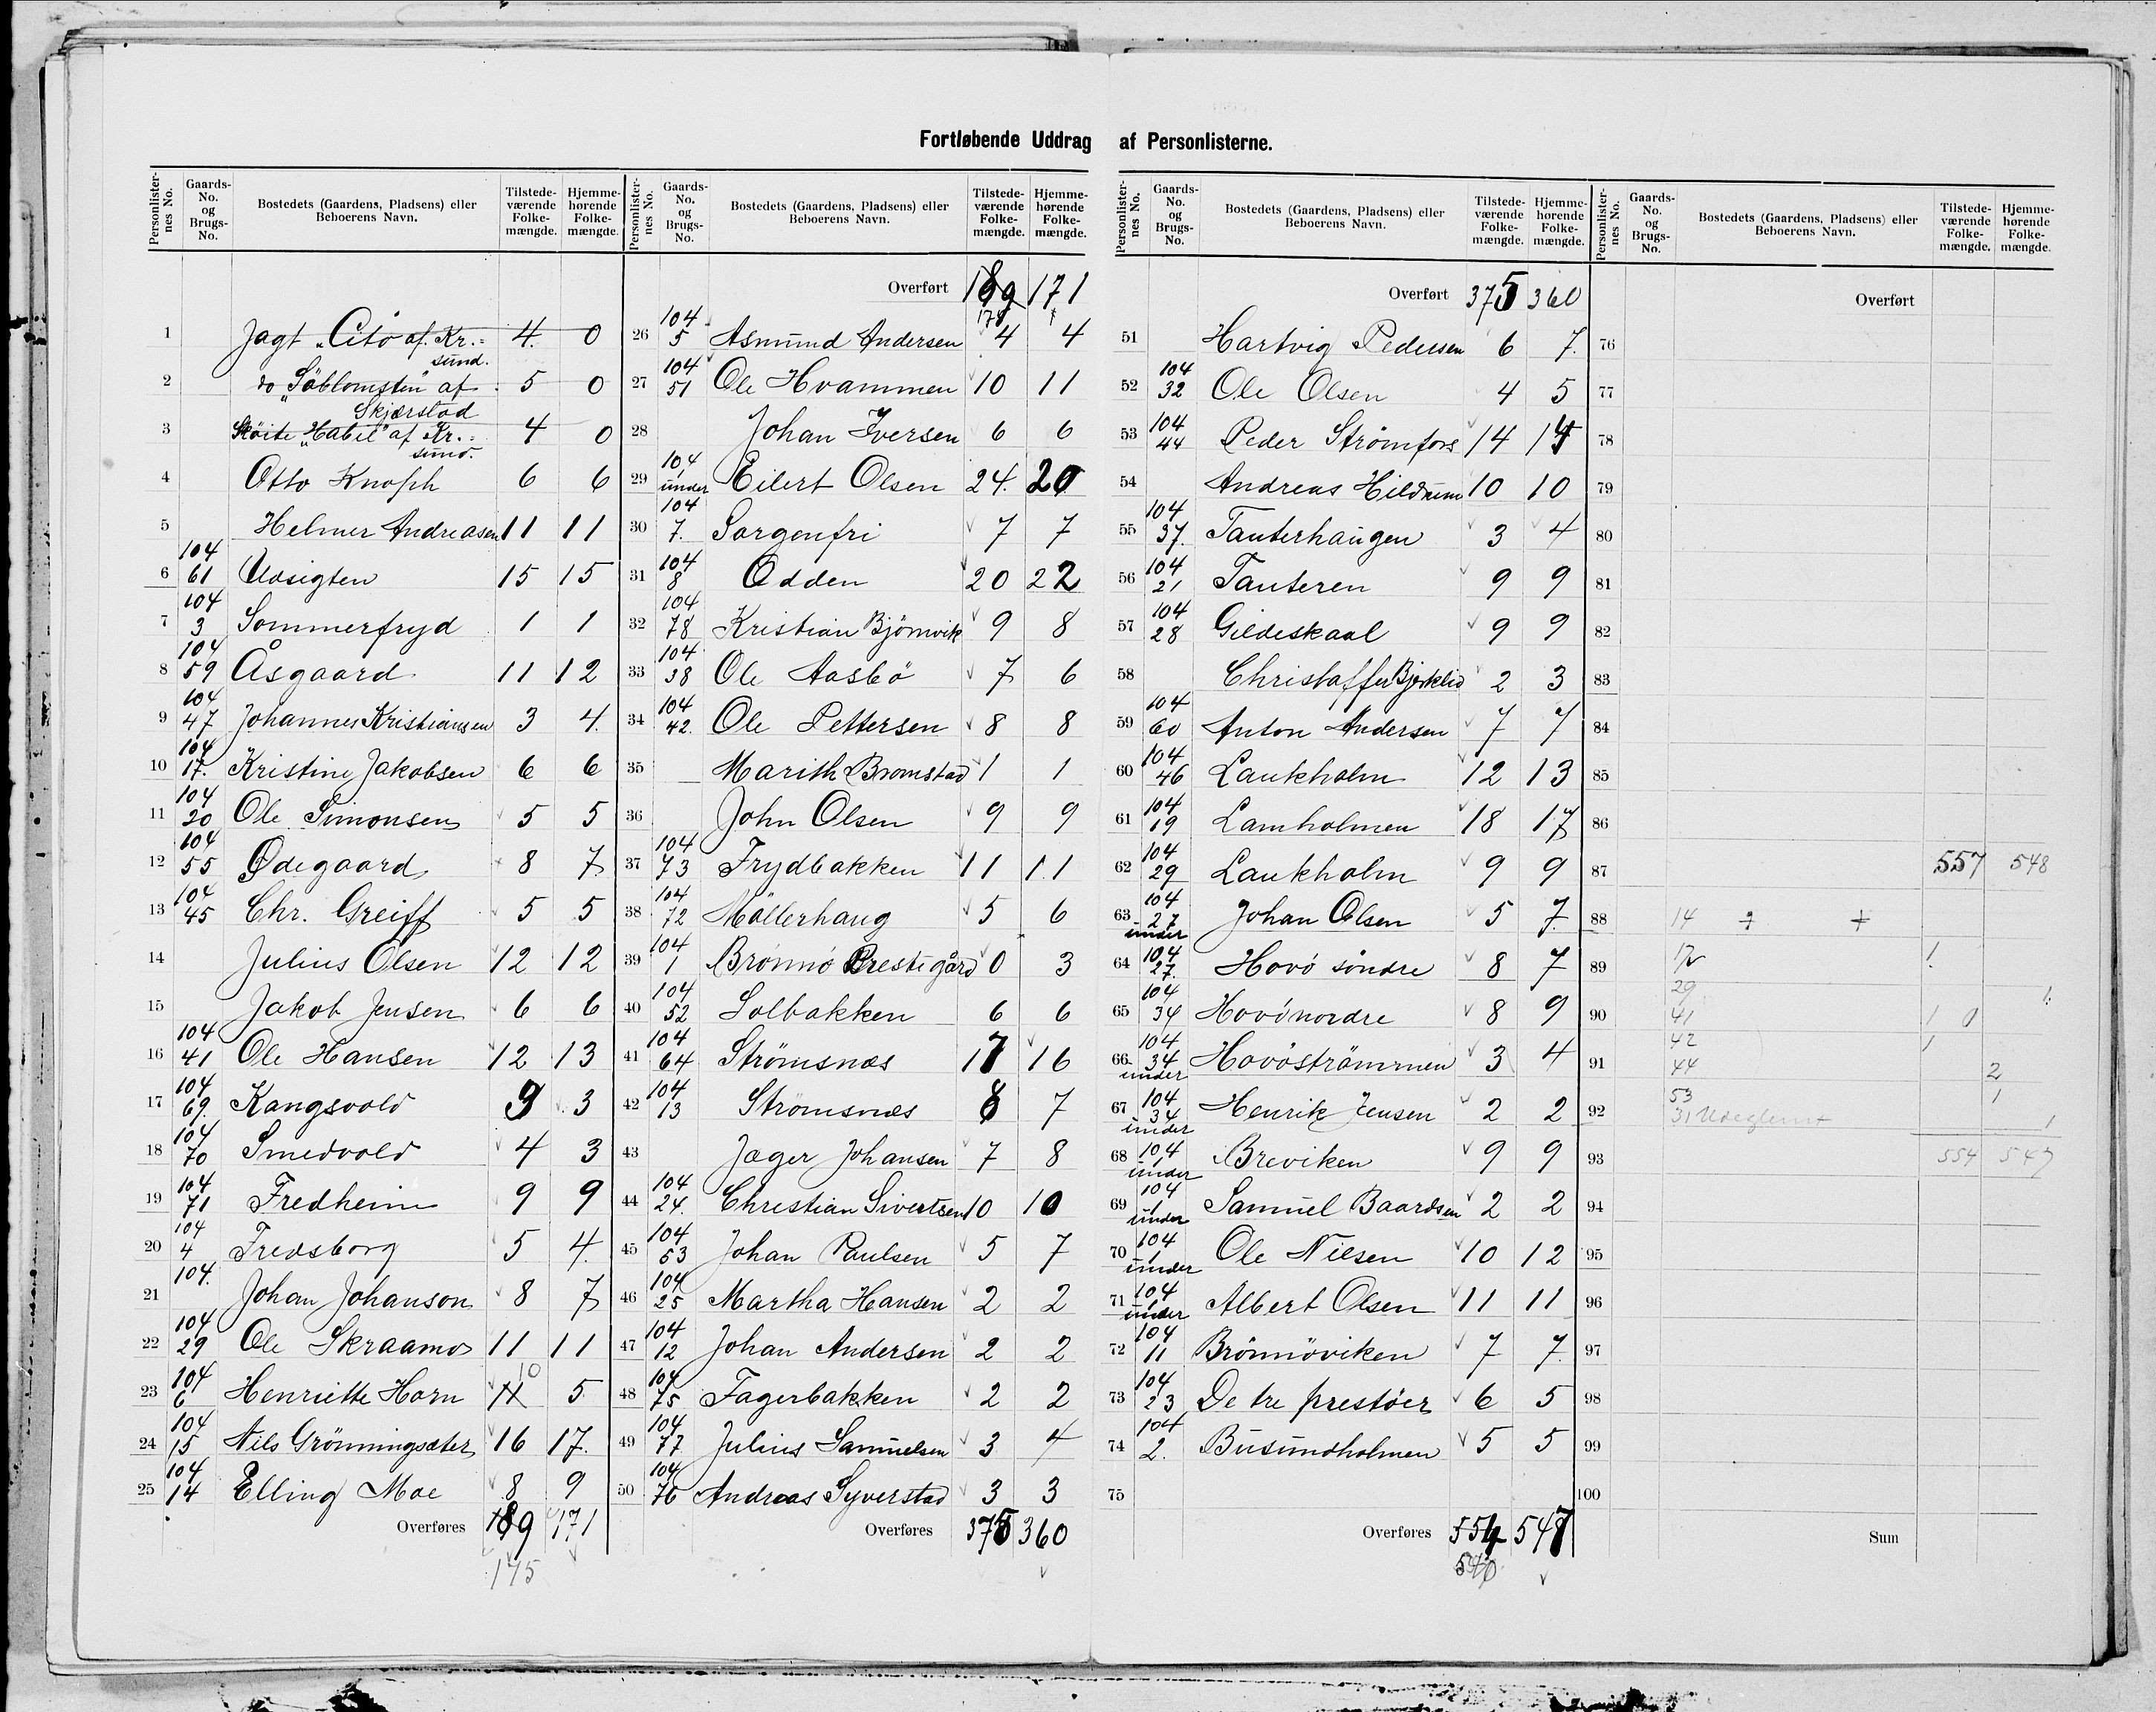 Fortløbende Uddrag af Personlisterne.
Personlisternes No. Gaards-No. og Brugs-No. Bostedets (Gaardens, Pladsens) eller Beboerens Navn. Tilstedeværende Folkemængde. Hjemmehørende Folkemængde.
1 Jagt „Cito" af Kr.=sund. 4 0
2 do „Söblomsten" af Skjærstad 5 0
3 Skøite „Habil" af Kr.=sund. 4 0
4 Otto Knoph 6 6
5 Helmer Andreasen 11 11
6 104 61 Udsigten 15 15
7 104 3 Sommerfryd 1 1
8 104 59 Åsgaard 11 12
9 104 47 Johannes Kristiansen 3 4.
10 104 17. Kristine Jakobsen 6 6
11 104 20 Ole Simonsen 5 5
12 104 55 Ødegaard 8 7
13 104 45 Chr. Greiff 5 5
14 Julius Olsen 12 12
15 Jakob Jensen 6 6
16 104 41 Ole Hansen 12 13
17 104 69. Kangsvold 3 3
18 104 70 Smedvold 4 3
19 104 71 Fredheim 9 9
20 104 4 Fredsborg 5 4.
21 104. Johan Johanson 8 7
22 104 29 Ole Skraamo 11 11
23 104 6 Henriette Horn 11 10 5
24 104 15 Nils Grönningsæter 16 17.
25 104 14 Elling Moe 8 9
Overføres 189 171
175
Personlisternes No. Gaards-No. og Brugs-No. Bostedets (Gaardens, Pladsens) eller Beboerens Navn. Tilstedeværende Folkemængde. Hjemmehørende Folkemængde.
Overført 189 171
26 104 5 Asmund Andersen 4 4
27 104 51 Ole Hvammen 10 11
28 Johan Iversen 6 6
29 104 1 under Eilert Olsen 24. 20
30 104 7. Sorgenfri 7 7
31 104 8 Odden 20 22
32 104 78 Kristian Bjørnvik 9 8
33 104 38 Ole Aasbö 7 6
34 104 42. Ole Pettersen 8 8
35 Marith Bromstad 1 1
36 John Olsen 9 9
37 104 73 Frydbakken 11 11
38 104 72 Möllerhaug 5 6
39 104 1 Brönnö Prestegård 0 3
40 104 52 Solbakken 6 6
41 104 64 Strömsnæs 17 16
42 104 13 Strömsnæs 8 7
43 Jæger Johansen 7 8
44 104 24. Christian Sivertsen 10 10
45 104 53 Johan Paulsen 5 7
46 104 25 Martha Hansen 2 2
47 104 12 Johan Andersen 2 2
48 104 75 Fagerbakken 2 2
49 104 77 Julius Samuelsen 3 4
50 104 76 Andreas Syverstad 3 3
Overføres 375 360
Personlisternes No. Gaards-No. og Brugs-No. Bostedets (Gaardens, Pladsens) eller Beboerens Navn. Tilstedeværende Folkemængde. Hjemmehørende Folkemængde.
Overført 375 360
51 Hartvig Pedersen 6 7.
52 104 32 Ole Olsen 4 5
53 104 44 Peder Strømfors 14 14
54 Andreas Hildrum 10 10
55 104 37. Tauterhaugen 3 4
56 104 21 Tauteren 9 9
57 104 28 Gildeskaal 9 9
58 Christoffer Bjerklid 2 3
59 104 60 Anton Andersen 7 7
60 104 46 Laukholm 12 13
61 104 19 Lamholmen 18 17
62 104 29 Laukholm 9 9
63 104 27 under Johan Olsen 5 7.
64 104 27. Hovö söndre 8 7
65 104 34 Hovö nordre 8 9
66 104 34 under Hovöströmmen 3 4
67 104 34 under Henrik Jensen 2 2
68 104 1 under Breviken 9 9
69 104 1 under Samuel Baardsen 2 2
70 104 1 under Ole Nilsen 10 12
71 104 1 under Albert Olsen 11 11
72 104 11 Brönnöviken 7 7
73 104 23 De tre prestöer 6 5
74 104 2. Busundholmen 5 5
75
Overføres 554 547
540
Personlisternes No. Gaards-No. og Brugs-No. Bostedets (Gaardens, Pladsens) eller Beboerens Navn. Tilstedeværende Folkemængde. Hjemmehørende Folkemængde.
Overført
76
77
78
79
80
81
82
83
84
85
86
87 557 548
88 14
89 1.
29 1.
90 41 1
91 42 1
44 2
92 53 1
31 1
93 554 547
94
95
96
97
98
99
100
Sum